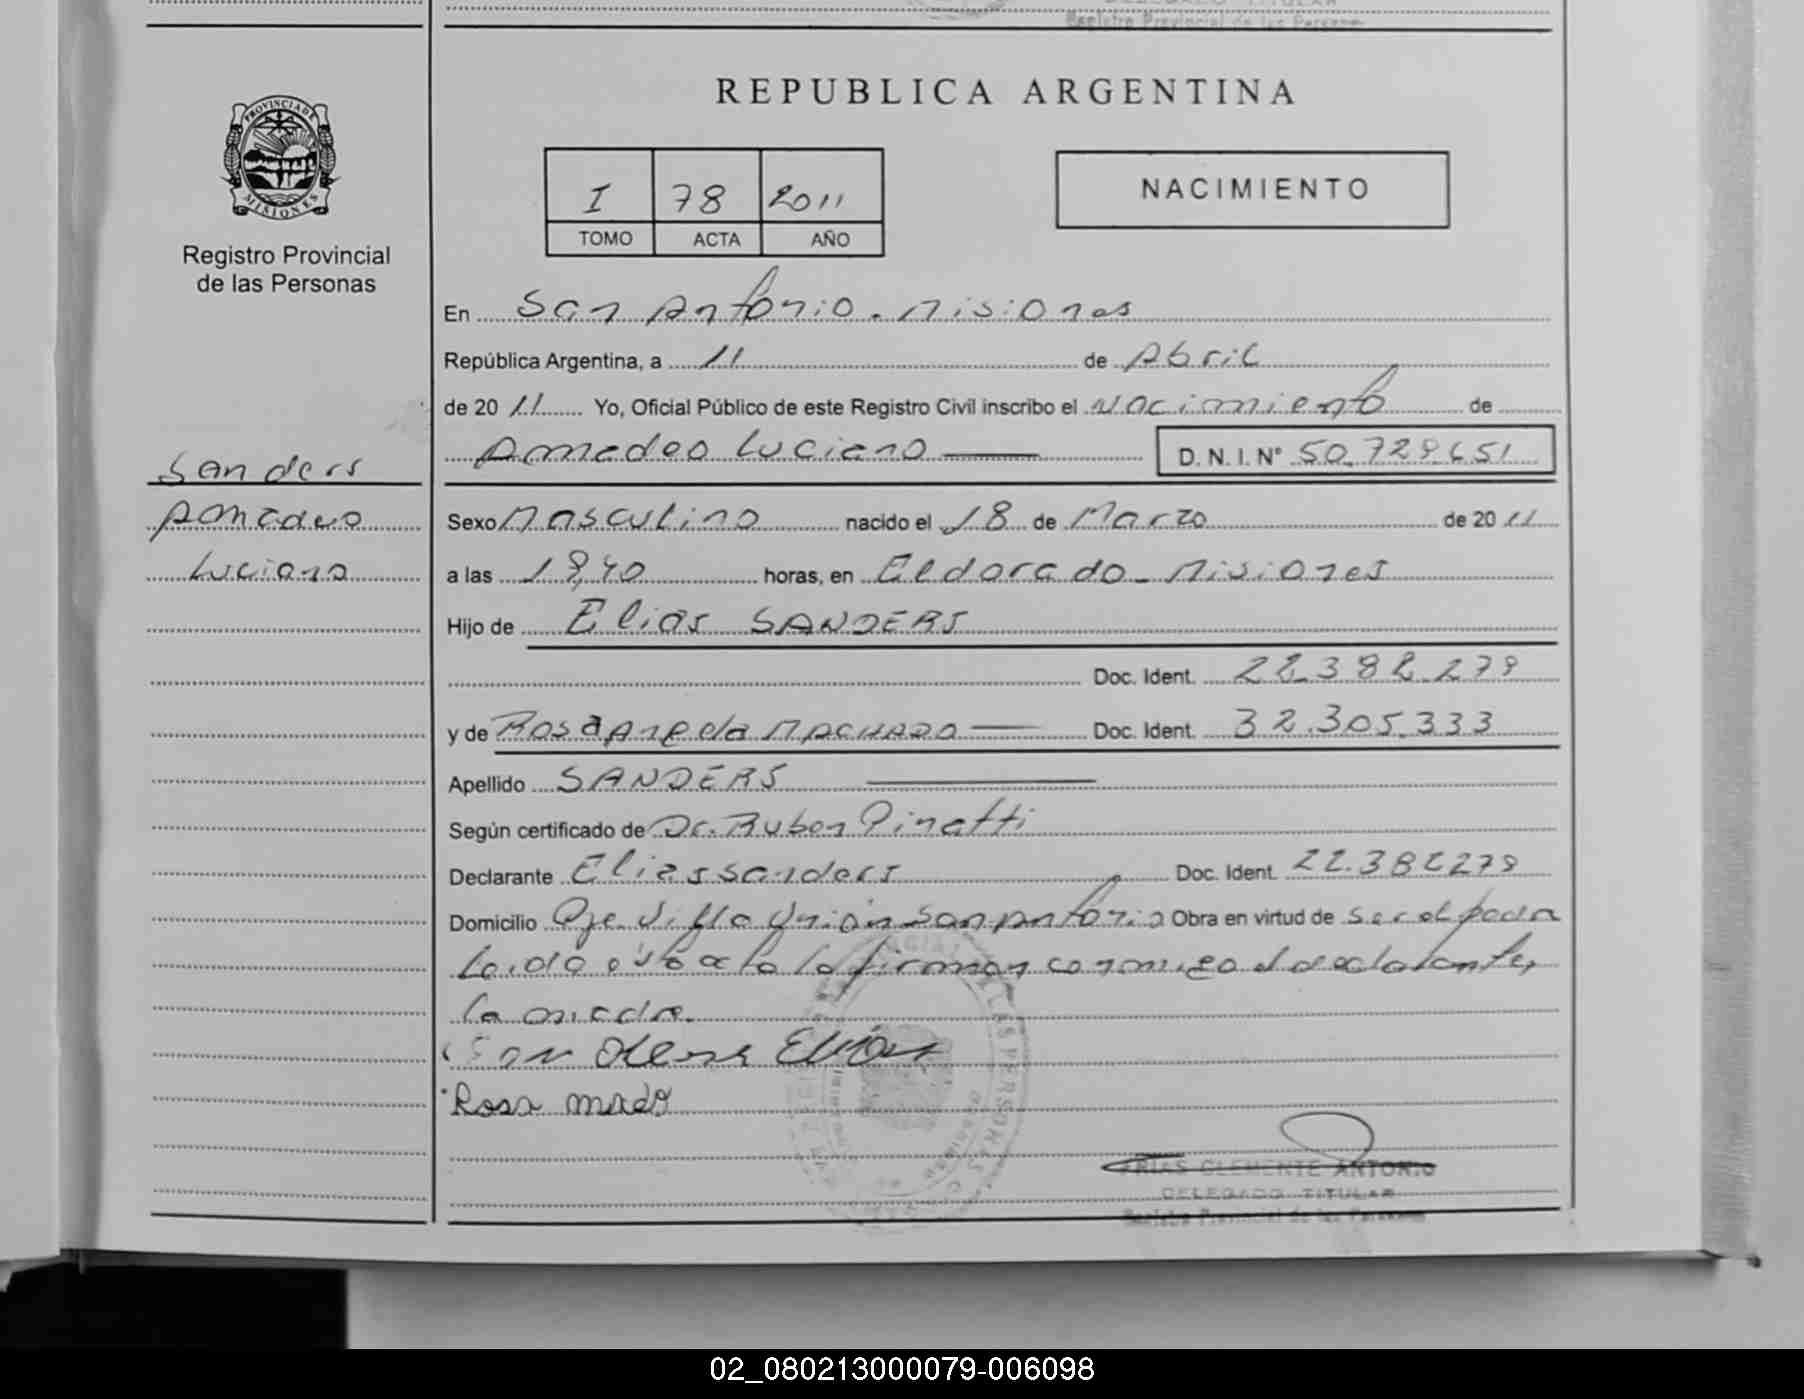 Registro Provincial de las Personas
REPUBLICA ARGENTINA
PROVINCIA DE
MISIONES
Registro Provincial
de las Personas
I 78 2011
TOMO ACTA AÑO
NACIMIENTO
En San Antonio. Misiones
República Argentina, a 11 de Abril
de 2011 Yo, Oficial Público de este Registro Civil inscribo el Nacimiento de
Amadeo Luciano D. N. I. N° 50.729.651
Sanders
Amadeo
Luciano
Sexo Masculino nacido el 18 de Marzo de 2011
a las horas, en Eldorado - Misiones
Hijo de Elias SANDERS
Doc. Ident. 22.382.279
y de Rosa Angela MACHADO Doc. Ident. 32.305.333
Apellido SANDERS
Según certificado de Dr. Ruben Pinatti
Declarante Elias Sanders Doc. Ident. 22.382279
Domicilio Pje. Villa Unión San Antonio Obra en virtud de ser el padre
Leida esta acta la firman conmigo el declarante,
la madre.
Elias
Rosa
ARIAS CLEMENTE ANTONIO
DELEGADO TITULAR
Registro Provincial de las Personas
02_080213000079-006098